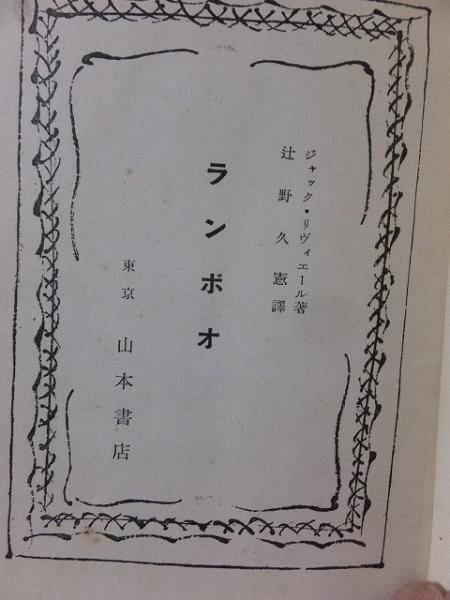 ジャック・リヴィエール著
辻野久憲譯
ランボオ
東京 山本書店